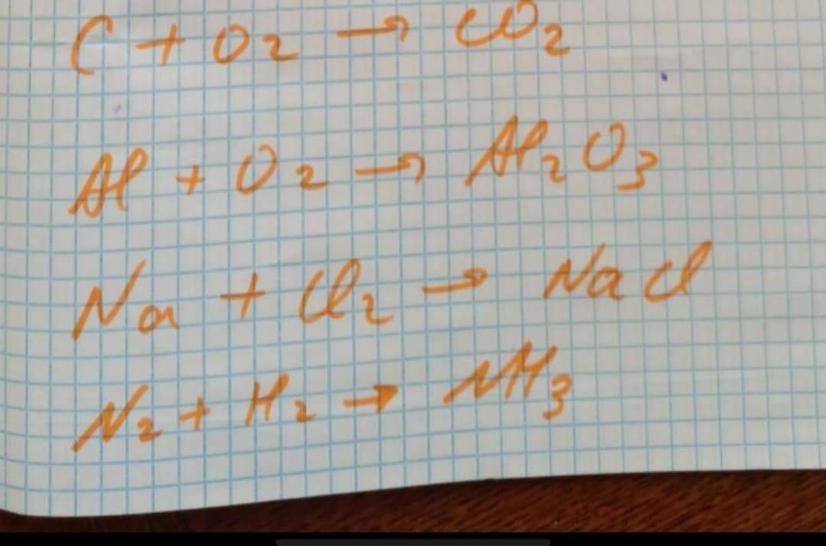 C + O2 → CO2
Al + O2 → Al2O3
Na + Cl2 → NaCl
N2 + H2 → NH3